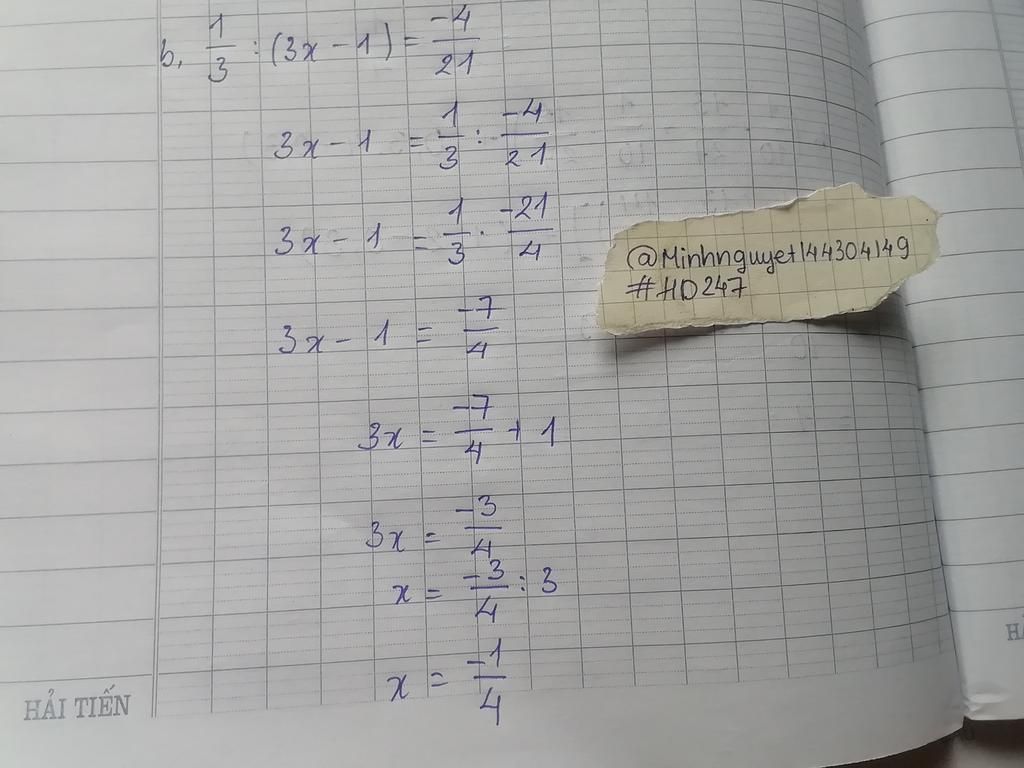 b, 1/3 : (3x - 1) = -4/21
3x - 1 = 1/3 : -4/21
3x - 1 = 1/3 . -21/4
3x - 1 = -7/4
3x = -7/4 + 1
3x = -3/4
x = -3/4 : 3
x = -1/4
@Minhnguyet144304149
#HD247
HẢI TIẾN